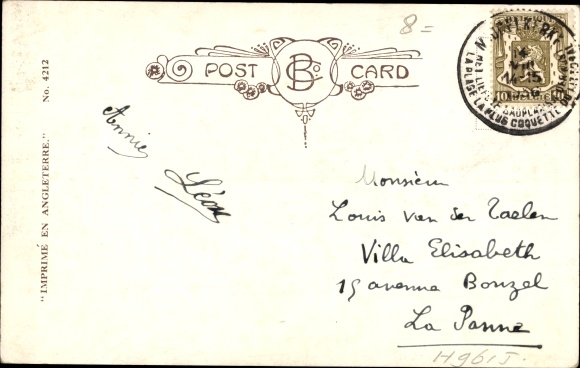 8=
POST CARD
B Co
"IMPRIMÉ EN ANGLETERRE."
No. 4212
Annie
Léon
Monsieur
Louis van der Taelen
Villa Elisabeth
15 avenue Bonzel
La Panne
H961J.
14-15
LA PLAGE LA PLUS COQUETTE